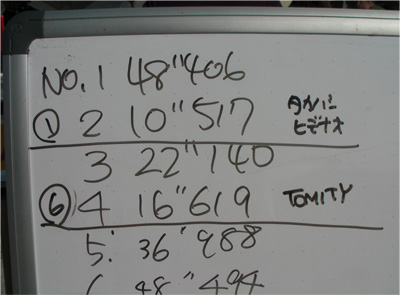 NO.1 48"406
① 2 10"517 タカハシ ヒデナオ
3 22"140
⑥ 4 16"619 TOMITY
5. 36"988
48"494